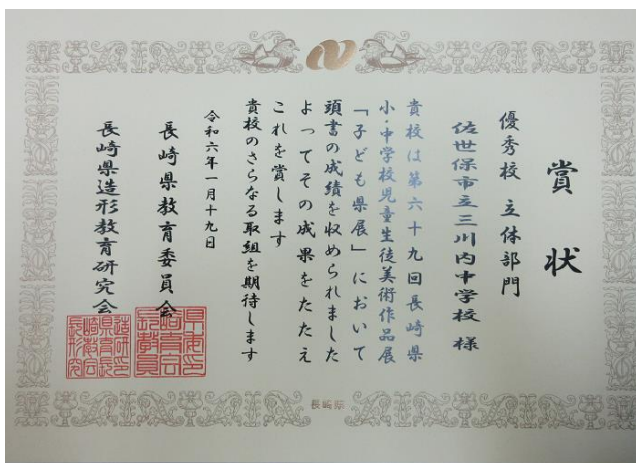 賞状
優秀校 立体部門
佐世保市立三川内中学校 様
貴校は第六十九回長崎県
小・中学校児童生徒美術作品展
「子ども県展」において
頭書の成績を収められました
よってその成果をたたえ
これを賞します
貴校のさらなる取組を期待します
令和六年一月十九日
長崎県教育委員会
長崎県造形教育研究会
長崎県